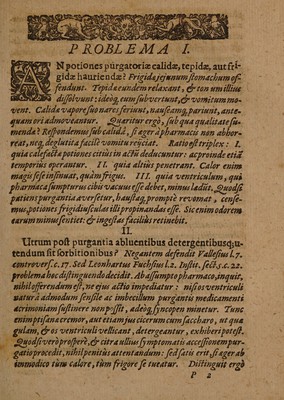 PROBLEMA I.
AN potiones purgatoriæ calidæ, tepidæ, aut frigidæ hauriendæ? Frigida jejunum stomachum offendunt. Tepida eundem relaxant, & tonum illius
dissolvunt: ideoq́; eum subvertunt, & vomitum movent. Calida vapore suo nares feriunt, nauseamq́; pariunt, antequam ori admoveantur. Quæritur ergò, sub qua qualitate sumenda? Respondemus sub calidâ, si æger à pharmacis non abhorreat, neq́; deglutita facilè vomitu rejiciat. Ratio est triplex: I.
quia calefacta potiones citius in actũ deducuntur: ac proinde etiã
temperius operantur. II. quia altius penetrant. Calor enim
magis sese insinuat, quàm frigus. III. quia ventriculum, qui
pharmaca sumpturus cibi vacuus esse debet, minus lædũt. Quodsi
patiens purgantia aversetur, haustaq́; promptè revomat, censemus, potiones frigidiusculas illi propinandas esse. Sic enim odorem
earum minus sentiet: & ingestas facilius retinebit.
II.
Utrum post purgantia abluentibus detergentibusq́; utendum sit sorbitionibus? Negantem defendit Vallesius l. 7.
controvers. c. 17. Sed Leonhartus Fuchsius l. 2. Instit. sect. 5. c. 22.
problema hoc distinguendo decidit. Ab assumpto pharmaco, inquit,
nihil offerendum est, ne ejus actio impediatur: nisi os ventriculi
naturâ admodum sensile ac imbecillum purgantis medicamenti
acrimoniam sustinere non possit, adeòq́; syncopen minetur. Tunc
enim ptisanæ cremor, aut etiam jus cicerum cum saccharo, ut qua
gulam, & os ventriculi vellicant, detergeantur, exhiberi potest.
Quodsi verò prosperè, & citra ullius symptomatis accessionem purgatio procedit, nihil penitus attentandum: sed satis erit, si æger ab
incommodo tum calore, tùm frigore se tueatur. Distinguit ergò
P 2